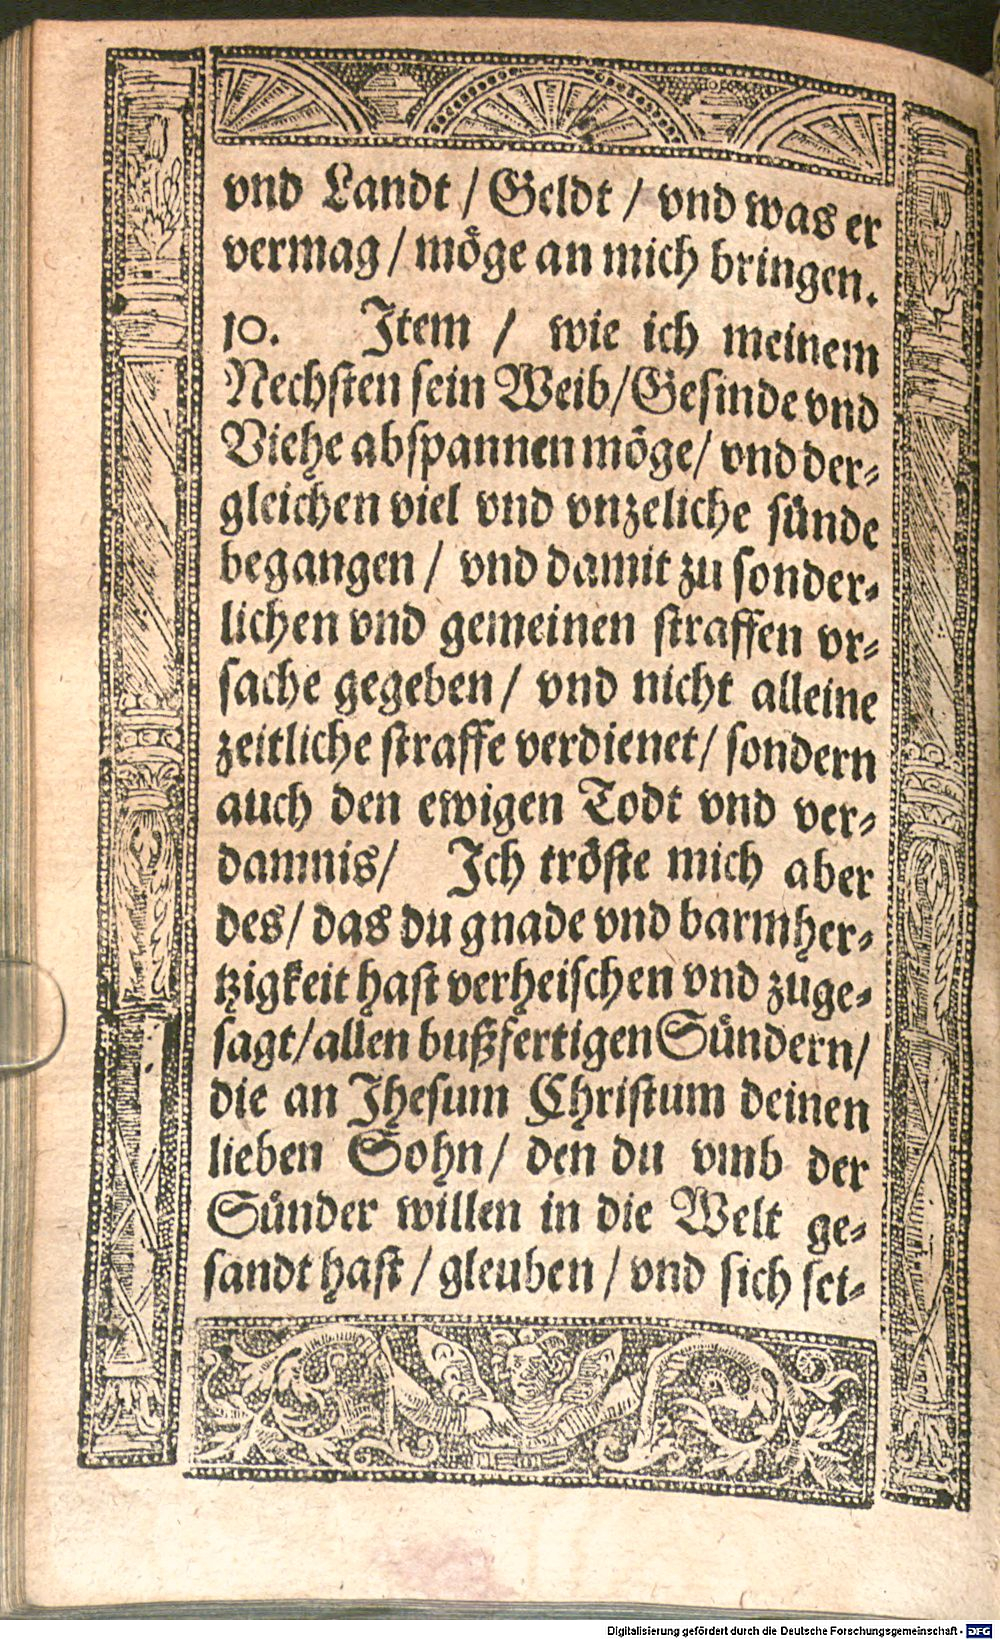 vnd Landt / Geldt / vnd was er
vermag / möge an mich bringen.
10. Item / wie ich meinem
Nechsten sein Weib / Gesinde vnd
Viehe abspannen möge / vnd der⸗
gleichen viel vnd vnzeliche sünde
begangen / vnd damit zu sonder⸗
lichen vnd gemeinen straffen vr⸗
sache gegeben / vnd nicht alleine
zeitliche straffe verdienet / sondern
auch den ewigen Todt vnd ver⸗
damnis / Ich tröste mich aber
des / das du gnade vnd barmher⸗
tzigkeit hast verheischen vnd zuge⸗
sagt / allen bußfertigen Sündern /
die an Jhesum Christum deinen
lieben Sohn / den du vmb der
Sünder willen in die Welt ge⸗
sandt hast / gleuben / vnd sich sei⸗
Digitalisierung gefördert durch die Deutsche Forschungsgemeinschaft - DFG